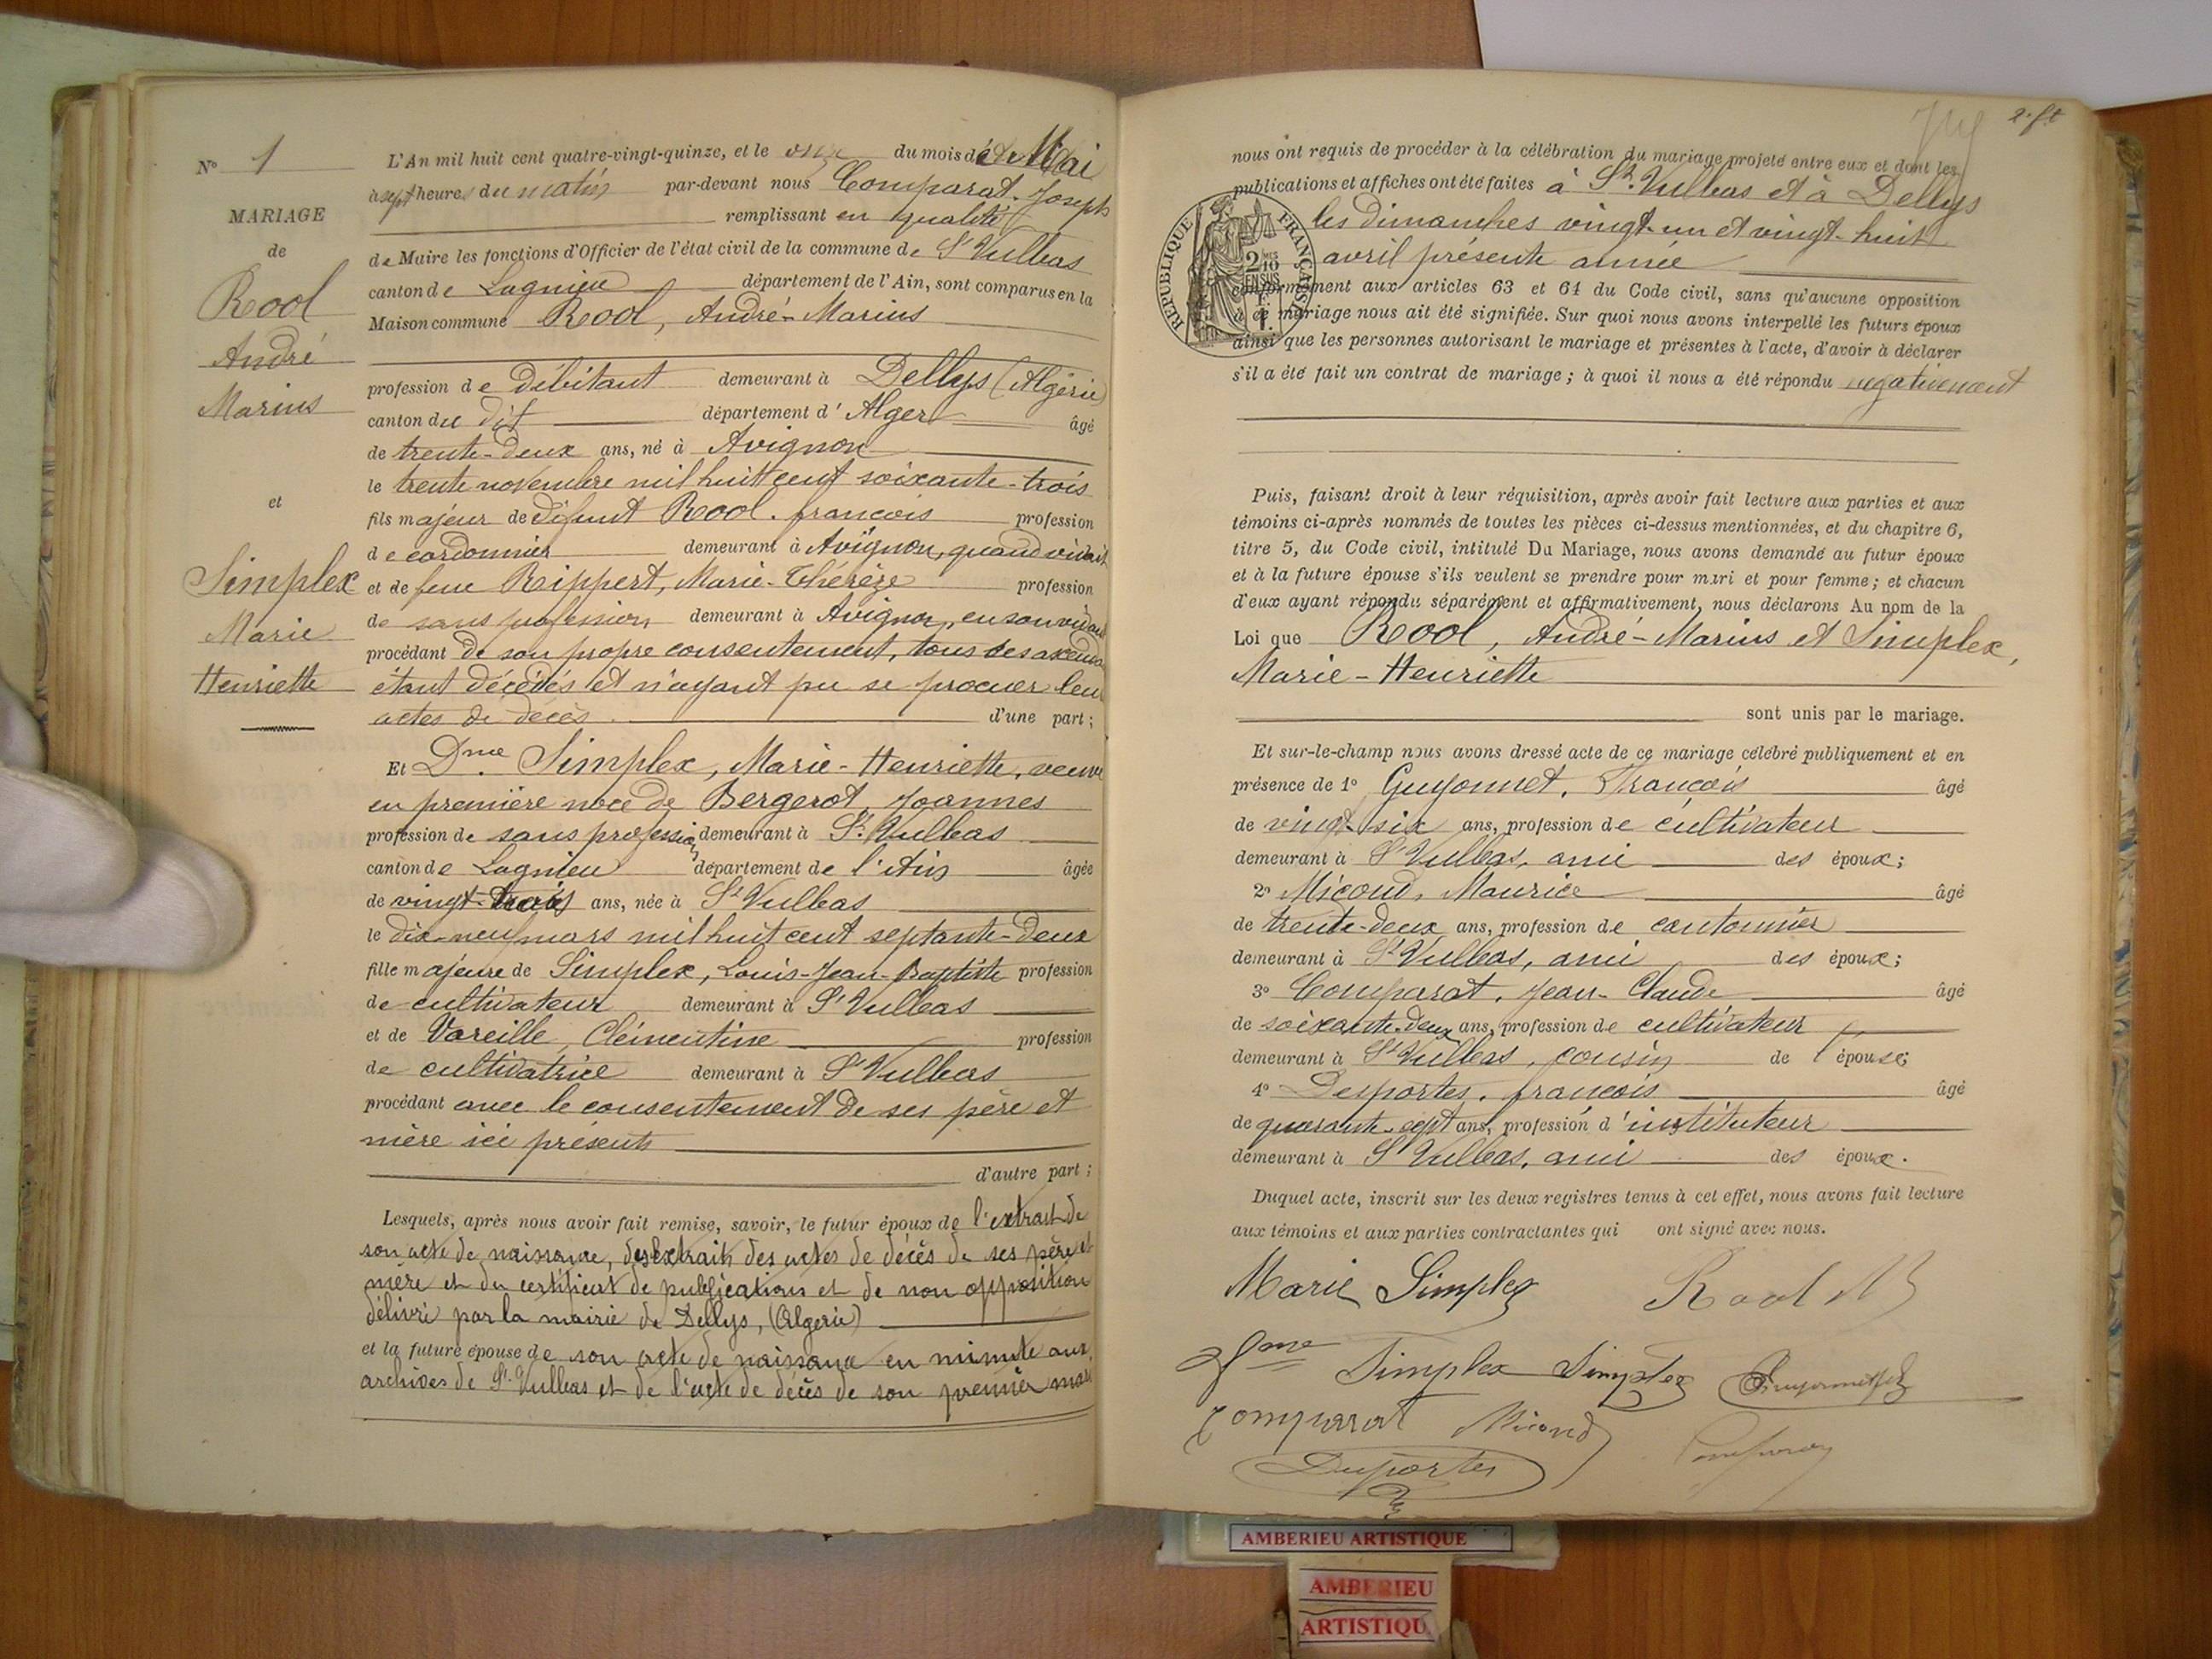 N° 1
MARIAGE
de
Rool
André
Marius
et
Simplex
Marie
Henriette
L'An mil huit cent quatre-vingt-quinze, et le onze du mois de Mai
à sept heures du matin par-devant nous Comparat. Joseph
remplissant en qualité
de Maire les fonctions d'Officier de l'état civil de la commune de St Vulbas
canton de Lagnieu département de l'Ain, sont comparus en la
Maison commune Rool, André-Marius
profession de débitant demeurant à Dellys (Algérie)
canton du dit département d'Alger âgé
de trente-deux ans, né à Avignon
le trente novembre mil huit cent soixante-trois
fils majeur de défunt Rool. françois profession
de cordonnier demeurant à Avignon, quand vivait
et de feue Rippert, Marie-Thérèze profession
de sans profession demeurant à Avignon, en son vivant
procédant de son propre consentement, tous ses ascendants
étant décédés et n'ayant pu se procurer leur
actes de décès. d'une part;
Et Dme Simplex, Marie-Henriette, veuve
en première noce de Bergerot, Joannes
profession de sans profession demeurant à St Vulbas
canton de Lagnieu département de l'Ain âgée
de vingt-trois ans, née à St Vulbas
le dix-neuf mars mil huit cent septante-deux
fille majeure de Simplex, Louis-Jean-Baptiste profession
de cultivateur demeurant à St Vulbas
et de Vareille, Clémentine profession
de cultivatrice demeurant à St Vulbas
procédant avec le consentement de ses père et
mère ici présents
d'autre part;
Lesquels, après nous avoir fait remise, savoir, le futur époux de l'extrait de
son acte de naissance, des extraits des actes de décès de ses père et
mère et du certificat de publications et de non opposition
délivré par la mairie de Dellys, (Algerie)
et la future épouse de son acte de naissance en minute aux
archives de St Vulbas et de l'acte de décès de son premier mari
2. ft
nous ont requis de procéder à la célébration du mariage projeté entre eux et dont les
publications et affiches ont été faites à St. Vulbas et à Dellys
les dimanches vingt-un et vingt-huit
avril présente année
conformément aux articles 63 et 64 du Code civil, sans qu'aucune opposition
à ce mariage nous ait été signifiée. Sur quoi nous avons interpellé les futurs époux
ainsi que les personnes autorisant le mariage et présentes à l'acte, d'avoir à déclarer
s'il a été fait un contrat de mariage; à quoi il nous a été répondu négativement
RÉPUBLIQUE FRANÇAISE
2 10
EN SUS
Puis, faisant droit à leur réquisition, après avoir fait lecture aux parties et aux
témoins ci-après nommés de toutes les pièces ci-dessus mentionnées, et du chapitre 6,
titre 5, du Code civil, intitulé Du Mariage, nous avons demandé au futur époux
et à la future épouse s'ils veulent se prendre pour mari et pour femme; et chacun
d'eux ayant répondu séparément et affirmativement, nous déclarons Au nom de la
Loi que Rool, André-Marius et Simplex,
Marie-Henriette
sont unis par le mariage.
Et sur-le-champ nous avons dressé acte de ce mariage célébré publiquement et en
présence de 1° Guyonnet, François âgé
de vingt-six ans, profession de cultivateur
demeurant à St Vulbas, ami des époux;
2° Micoud, Maurice âgé
de trente-deux ans, profession de cantonnier
demeurant à St Vulbas, ami des époux;
3° Comparat, Jean-Claude âgé
de soixante-deux ans, profession de cultivateur
demeurant à St Vulbas, cousin de l'épouse;
4° Desportes, françois âgé
de quarante-sept ans, profession d'instituteur
demeurant à St Vulbas, ami des époux.
Duquel acte, inscrit sur les deux registres tenus à cet effet, nous avons fait lecture
aux témoins et aux parties contractantes qui ont signé avec nous.
Marie Simplex Rool M
fme Simplex Simplex Guyonnet
Comparat Micoud Comparat
Desportes
AMBERIEU ARTISTIQUE
AMBERIEU
ARTISTIQU